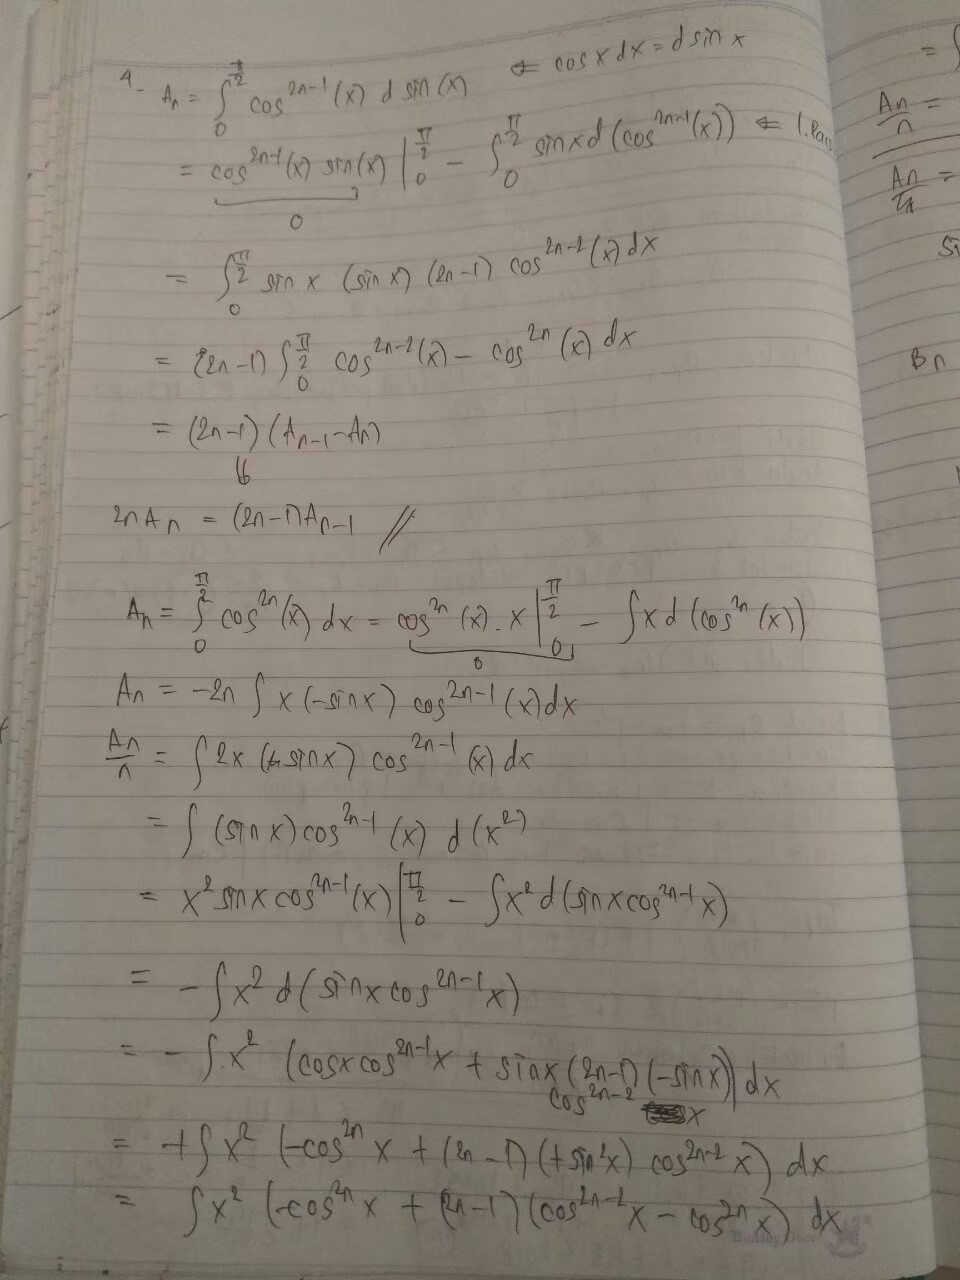 4. Aₙ = ∫₀^{π/2} cos^{2n-1}(x) d sin(x) ⇐ cos x dx = d sin x
= cos^{2n-1}(x) sin(x) |₀^{π/2} - ∫₀^{π/2} sin x d(cos^{2n-1}(x)) ⇐
0
= ∫₀^{π/2} sin x (sin x) (2n-1) cos^{2n-2}(x) dx
= (2n-1) ∫₀^{π/2} cos^{2n-2}(x) - cos^{2n}(x) dx
= (2n-1) (Aₙ₋₁ - Aₙ)
⇓
2n Aₙ = (2n-1) Aₙ₋₁ //
Aₙ = ∫₀^{π/2} cos^{2n}(x) dx = cos^{2n}(x) . x |₀^{π/2} - ∫ x d(cos^{2n}(x))
0
Aₙ = -2n ∫ x (-sin x) cos^{2n-1}(x) dx
Aₙ/n = ∫ 2x (+sin x) cos^{2n-1}(x) dx
= ∫ (sin x) cos^{2n-1}(x) d(x²)
= x² sin x cos^{2n-1}(x) |₀^{π/2} - ∫ x² d(sin x cos^{2n-1} x)
= - ∫ x² d(sin x cos^{2n-1} x)
= - ∫ x² (cos x cos^{2n-1} x + sin x (2n-1) (-sin x) dx
cos^{2n-2} x
= + ∫ x² (-cos^{2n} x + (2n-1) (+sin² x) cos^{2n-2} x) dx
= ∫ x² (-cos^{2n} x + (2n-1) (cos^{2n-2} x - cos^{2n} x) dx
= ∫
Aₙ/n =
Bn